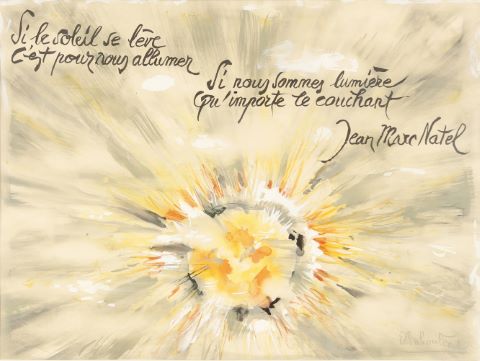 Si le soleil se lève
C'est pour nous allumer
Si nous sommes lumière
Qu'importe le couchant
Jean Marc Natel